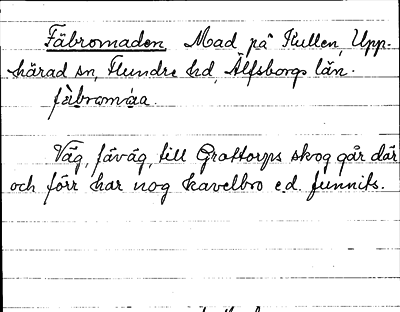 Fäbromaden Mad på Kullen, Upp-
härad sn, Flundre hd, Älfsborgs län.
fäbromáa.
Väg, fäväg, till Grattorps skog går där
och förr har nog kavelbro e.d. funnits.